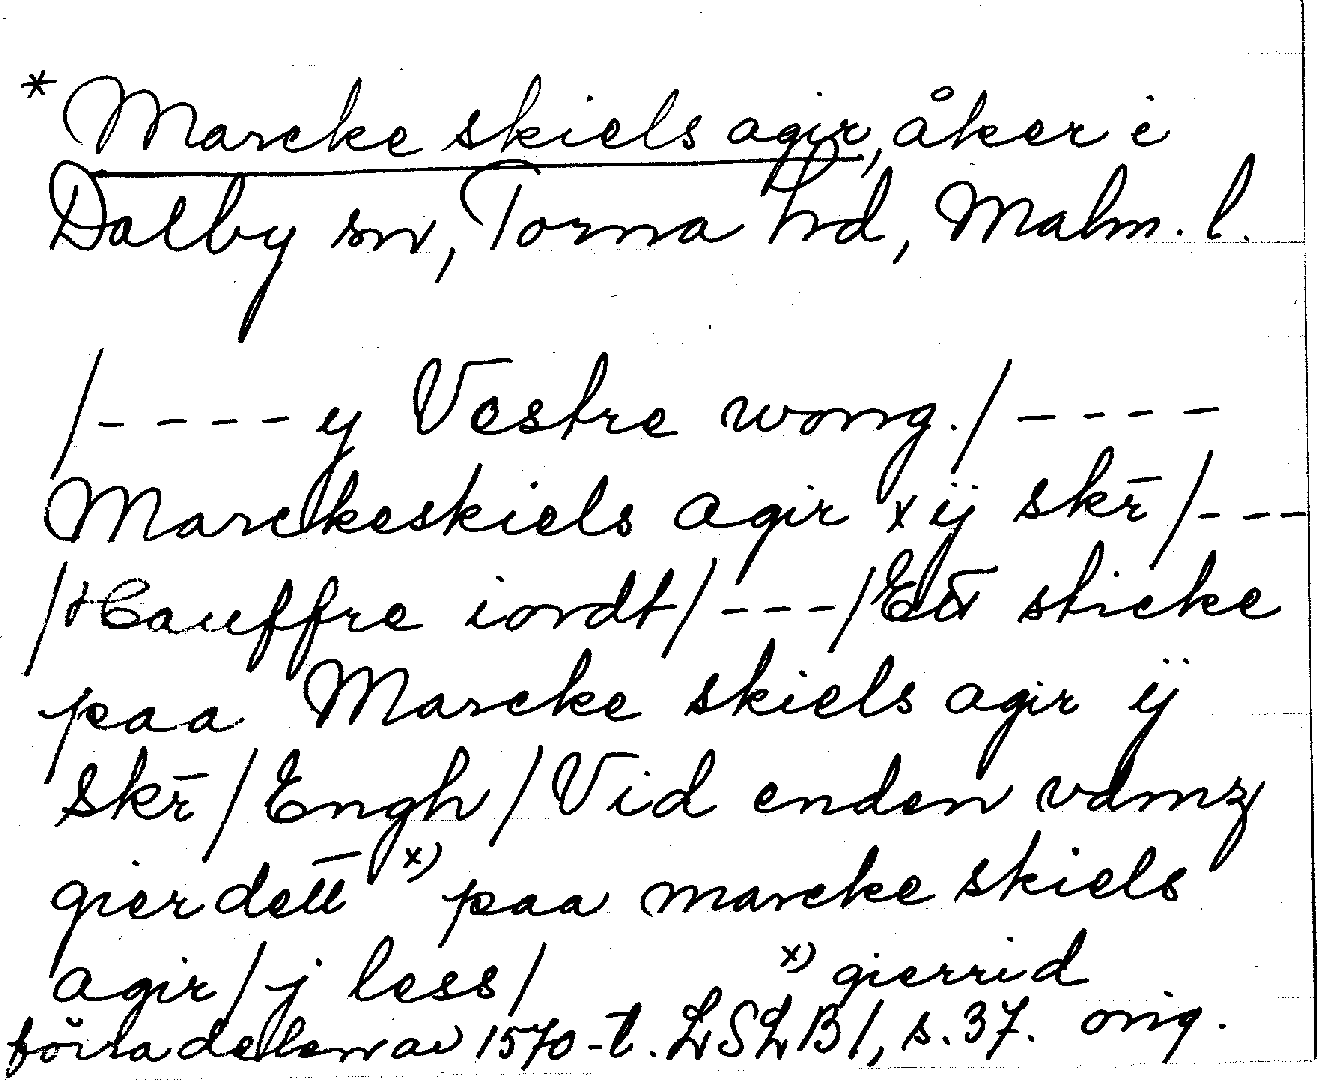 * Marcke skiels agir, åker i
Dalby sn, Torna hd, Malm. l.
/---- y Vestre wong./----
Marckeskiels agir xij skr̄/---
/Hauffre iordt/---/Ett sticke
paa Marcke skiels agir ij
skr̄/Engh/Vid enden vdmz
gierdett x) paa marcke skiels
agir/j less/ x) gierrid
första delen av 1570-t. LSLB 1, s. 37. orig.